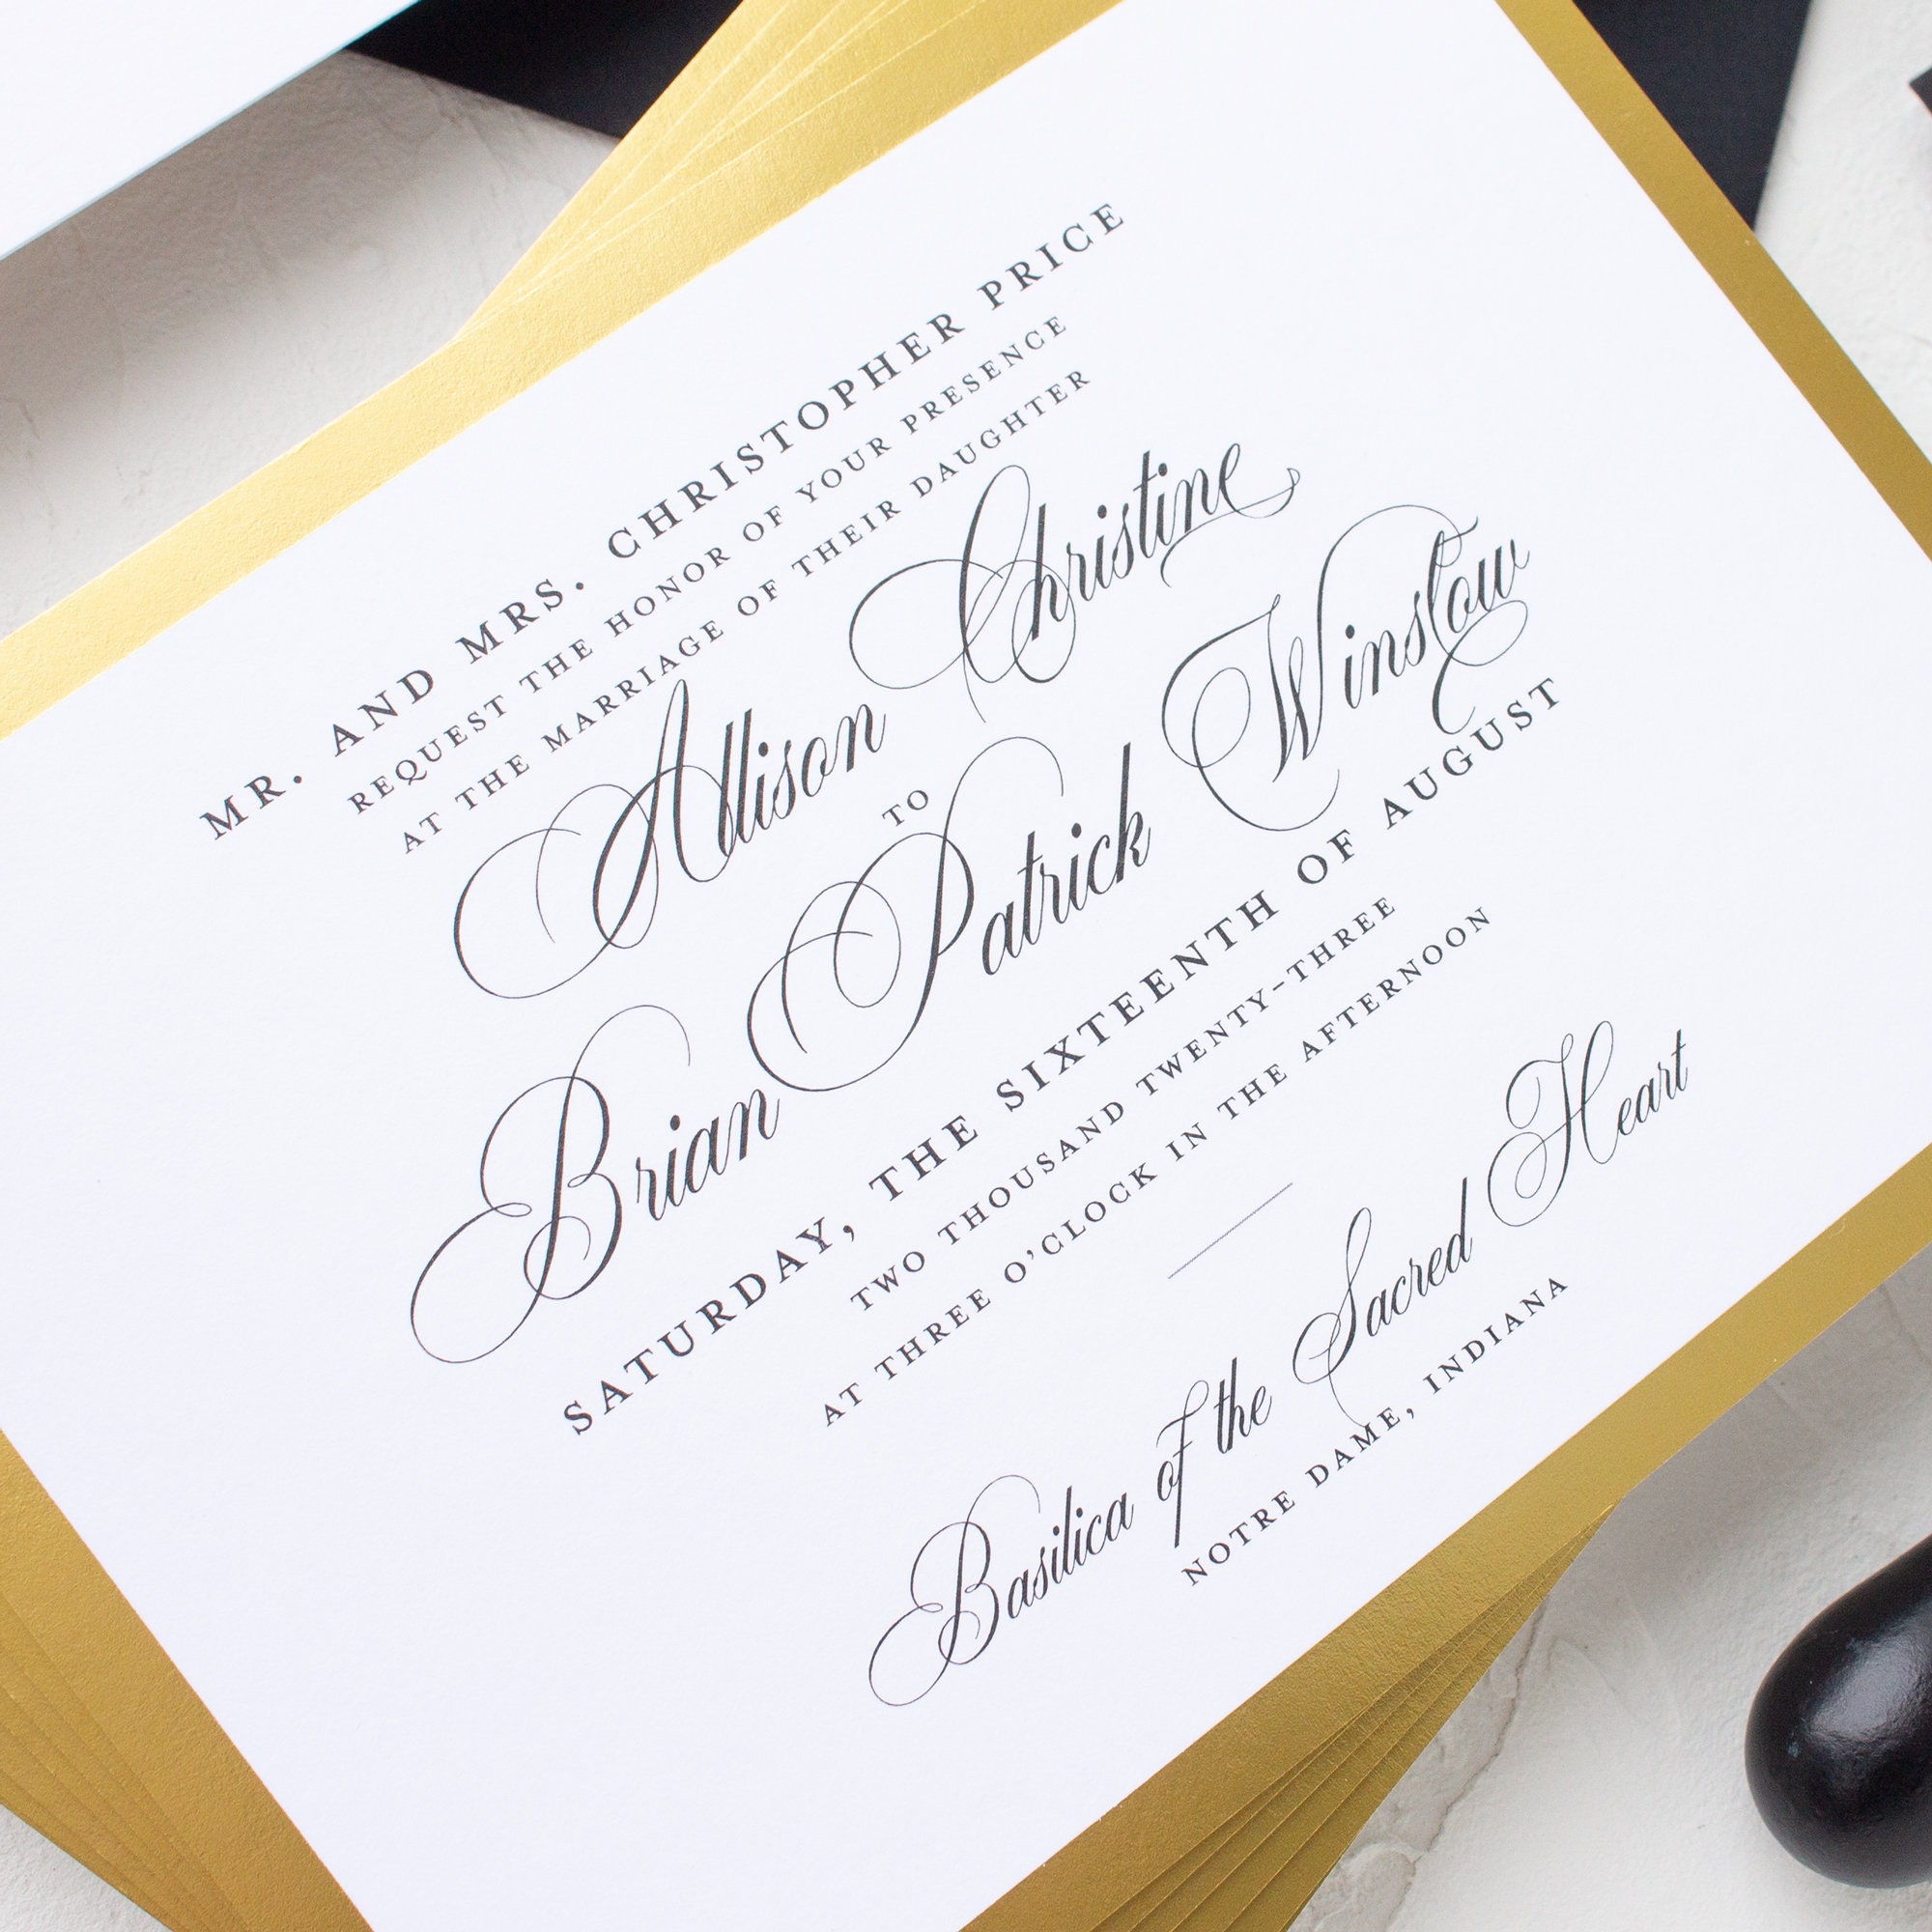 MR. AND MRS. CHRISTOPHER PRICE
REQUEST THE HONOR OF YOUR PRESENCE
AT THE MARRIAGE OF THEIR DAUGHTER
Allison Christine
TO
Brian Patrick Winslow
SATURDAY, THE SIXTEENTH OF AUGUST
TWO THOUSAND TWENTY-THREE
AT THREE O'CLOCK IN THE AFTERNOON
Basilica of the Sacred Heart
NOTRE DAME, INDIANA